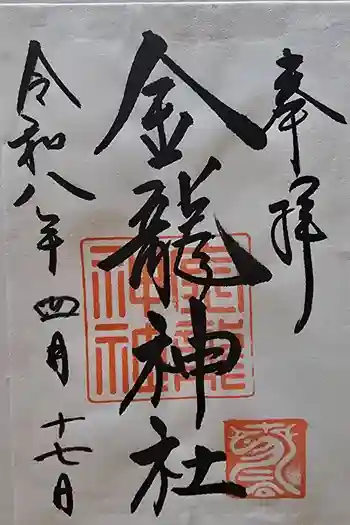 奉拝
金龍神社
令和八年四月十七日
金龍
神社